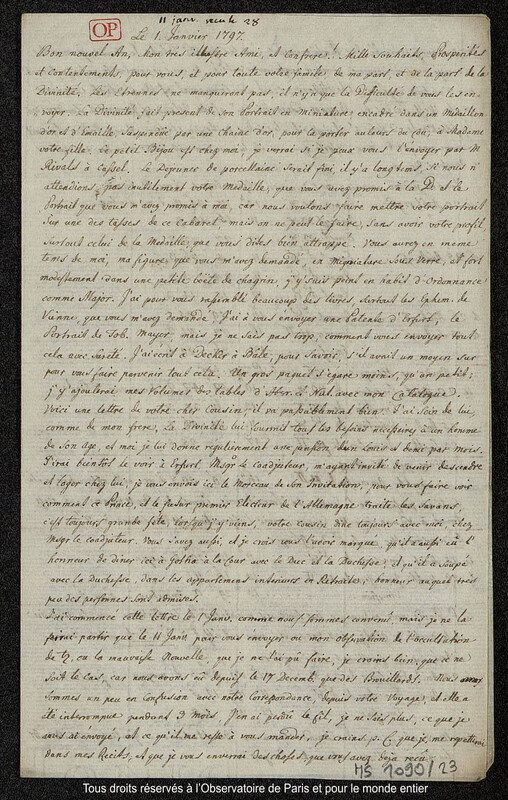 11 janv. recu le 28
OP
Le 1. Janvier 1797.
Bon nouvel An, Mon très illustre Ami, et Confrere! Mille Souhaits, Prosperités
et Contentements, pour vous, et pour toute votre famille, de ma part, et de la part de la
Divinité. Les Etrennes ne manqueront pas, il n'y a que la Difficulté de vous les en-
voyer. La Divinité fait present de Son Portrait en miniature, encadré dans un Medaillon
d'or et d'Emaille, Suspendüe par une chaine d'or, pour la porter autour du cou, à Madame
votre fille. Ce petit Bijou est chez moi, je verrai si je peux vous l'envoyer par M
Rivals à Cassel. Le Dejeuner de porcellaine Seroit fini il y a longtems, Si nous n'
attendions pas inutilement votre Medaille, que vous avez promis à la D. et le
Portrait que vous m'avez promis à moi, car nous voulons faire mettre votre portrait
Sur une des tasses de ce Cabaret, mais on ne peut le faire, Sans avoir votre profil,
Surtout celui de la Medaille, que vous dites bien attrappé. Vous aurez en meme
tems de moi, ma figure que vous m'avez demandé, en Mignature Sous Verre, et fort
modestement dans une petite boëte de chagrin, j'y suis peint en habit d'ordonnance
comme Major. J'ai pour vous rassemblé beaucoup des livres, Surtout les Ephem. de
Vienne, que vous m'avez demandé. J'ai à vous envoyer une Patente d'Erfurt, le
Portrait de Tob. Mayer, mais je ne sais pas trop, comment vous envoyer tout
cela avec Sureté. J'ai ecrit à Decker à Bâle, pour Savoir, s'il avait un moyen Sur
pour vous faire parvenir tout cela. Un gros paquet s'egare moins, qu'un petit;
j'y ajouterai mes Volumes des tables d'Aberr. et Nut. avec mon Catalogue.
Voici une lettre de votre cher Cousin, il va passablement bien. J'ai soin de lui,
comme de mon frere, La Divinité lui fournit tous les besoins necessaires à un homme
de Son age, et moi je lui donne regulierement une pension d'un Louis et demi par mois.
J'irai bientôt le voir à Erfurt, Msgr. le Coadjuteur, m'ayant invité de venir descendre
et loger chez lui, je vous envois ici le Morceau de Son Invitations, pour vous faire voir
comment ce Prince, et le futur premier Electeur de l'Allemagne traite les Savans,
c'est toujours grande fete, lorsqu'j'y viens, votre cousin dine toujours avec moi, chez
Msgr. le Coadjuteur. Vous Savez aussi, et je crois vous l'avoir marqué, qu'il a aussi eû l'
honneur de diner ici à Gotha à la Cour avec le Duc et la Duchesse, et qu'il a soupé
avec la Duchesse, dans les appartemens interieurs en Retraite, honneur auquel très
peu des personnes Sont admises.
J'ai commencé cette lettre le 1 Janv. comme nous Sommes convenû, mais je ne la
ferai partir que le 11 Janv. pour vous envoyer ou mon observation de l'occultation
de ♄, ou la mauvaise Nouvelle, que je ne l'ai pû faire, je crains bien, que ce ne
soit le cas, car nous avons eû depuis le 17 Decemb. que des Brouillards. Nous
Sommes un peu en Confusion avec notre Correspondance, depuis votre Voyage, et elle a
été interrompue pendant 3 mois. J'en ai perdû le fil, je ne Sais plus, ce que je
vous ai envoyé, et ce qu'il me reste à vous mander, je crains que je me repetterai
dans mes Recits, et que je vous enverrai des choses, que vous avez deja reçu.
MS 1090/23
Tous droits réservés à l'Observatoire de Paris et pour le monde entier